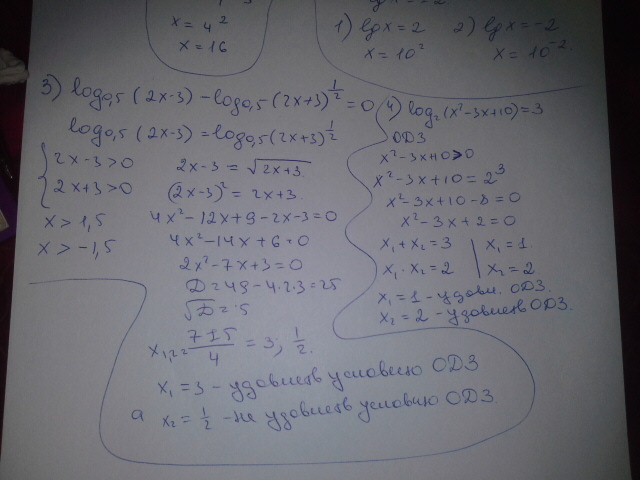 x = 4²
x = 16
1) lg x = 2 2) lg x = -2
x = 10² x = 10⁻².
3) log₀,₅ (2x-3) - log₀,₅ (2x+3)^½ = 0
log₀,₅ (2x-3) = log₀,₅ (2x+3)^½
{ 2x-3 > 0
2x+3 > 0
x > 1,5
x > -1,5
2x-3 = √2x+3
(2x-3)² = 2x+3.
4x² - 12x + 9 - 2x - 3 = 0
4x² - 14x + 6 = 0
2x² - 7x + 3 = 0
D = 49 - 4·2·3 = 25
√D = 5
x₁,₂ = 7±5/4 = 3; ½.
x₁ = 3 - удовлетв условию ОДЗ
а x₂ = ½ - не удовлетв условию ОДЗ.
4) log₂ (x² - 3x + 10) = 3
ОДЗ
x² - 3x + 10 > 0
x² - 3x + 10 = 2³
x² - 3x + 10 - 8 = 0
x² - 3x + 2 = 0
x₁ + x₂ = 3 | x₁ = 1
x₁ · x₂ = 2 | x₂ = 2
x₁ = 1 - удовл. ОДЗ.
x₂ = 2 - удовлетв ОДЗ.